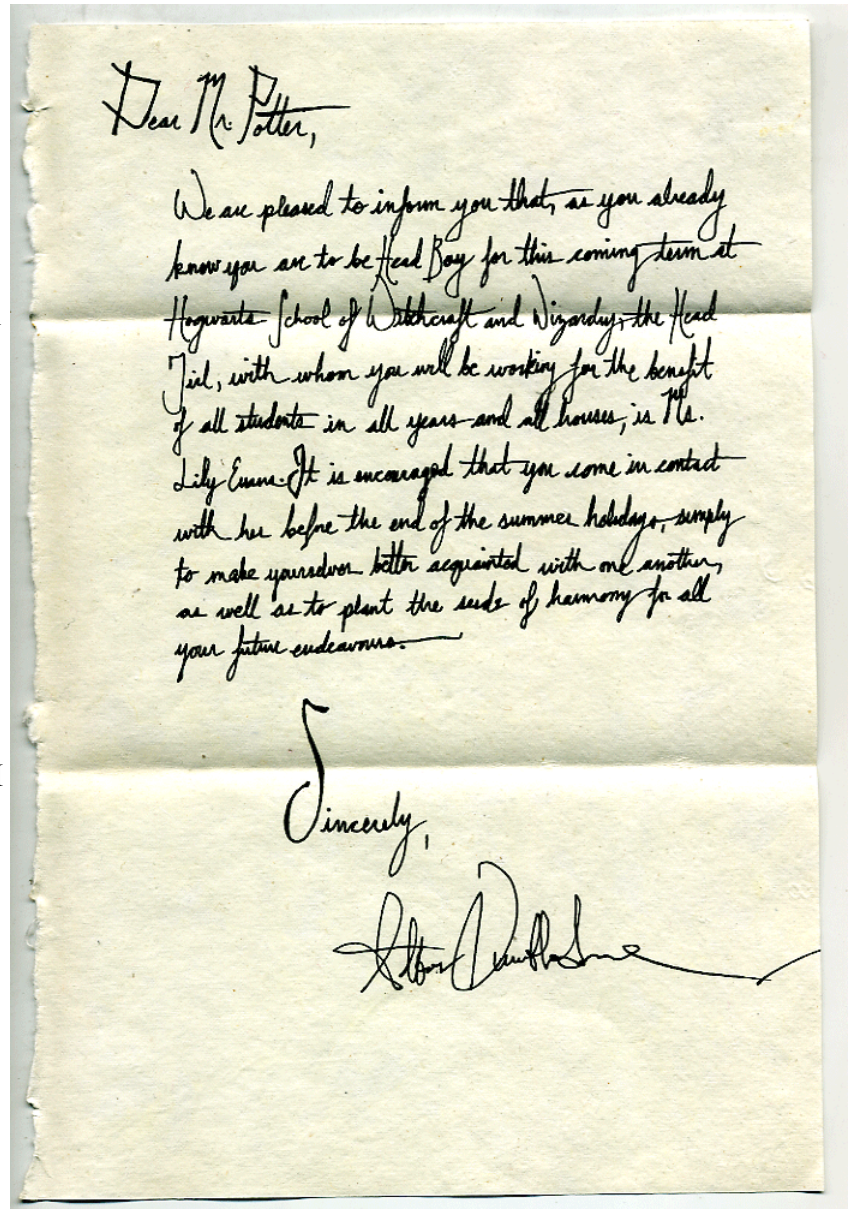 Dear Mr. Potter,
We are pleased to inform you that, as you already
know you are to be Head Boy for this coming term at
Hogwarts School of Witchcraft and Wizardry, the Head
Girl, with whom you will be working for the benefit
of all students in all years and all houses, is Ms.
Lily Evans. It is encouraged that you come in contact
with her before the end of the summer holidays, simply
to make yourselves better acquainted with one another,
as well as to plant the seeds of harmony for all
your future endeavours.
Sincerely,
Albus Dumbledore